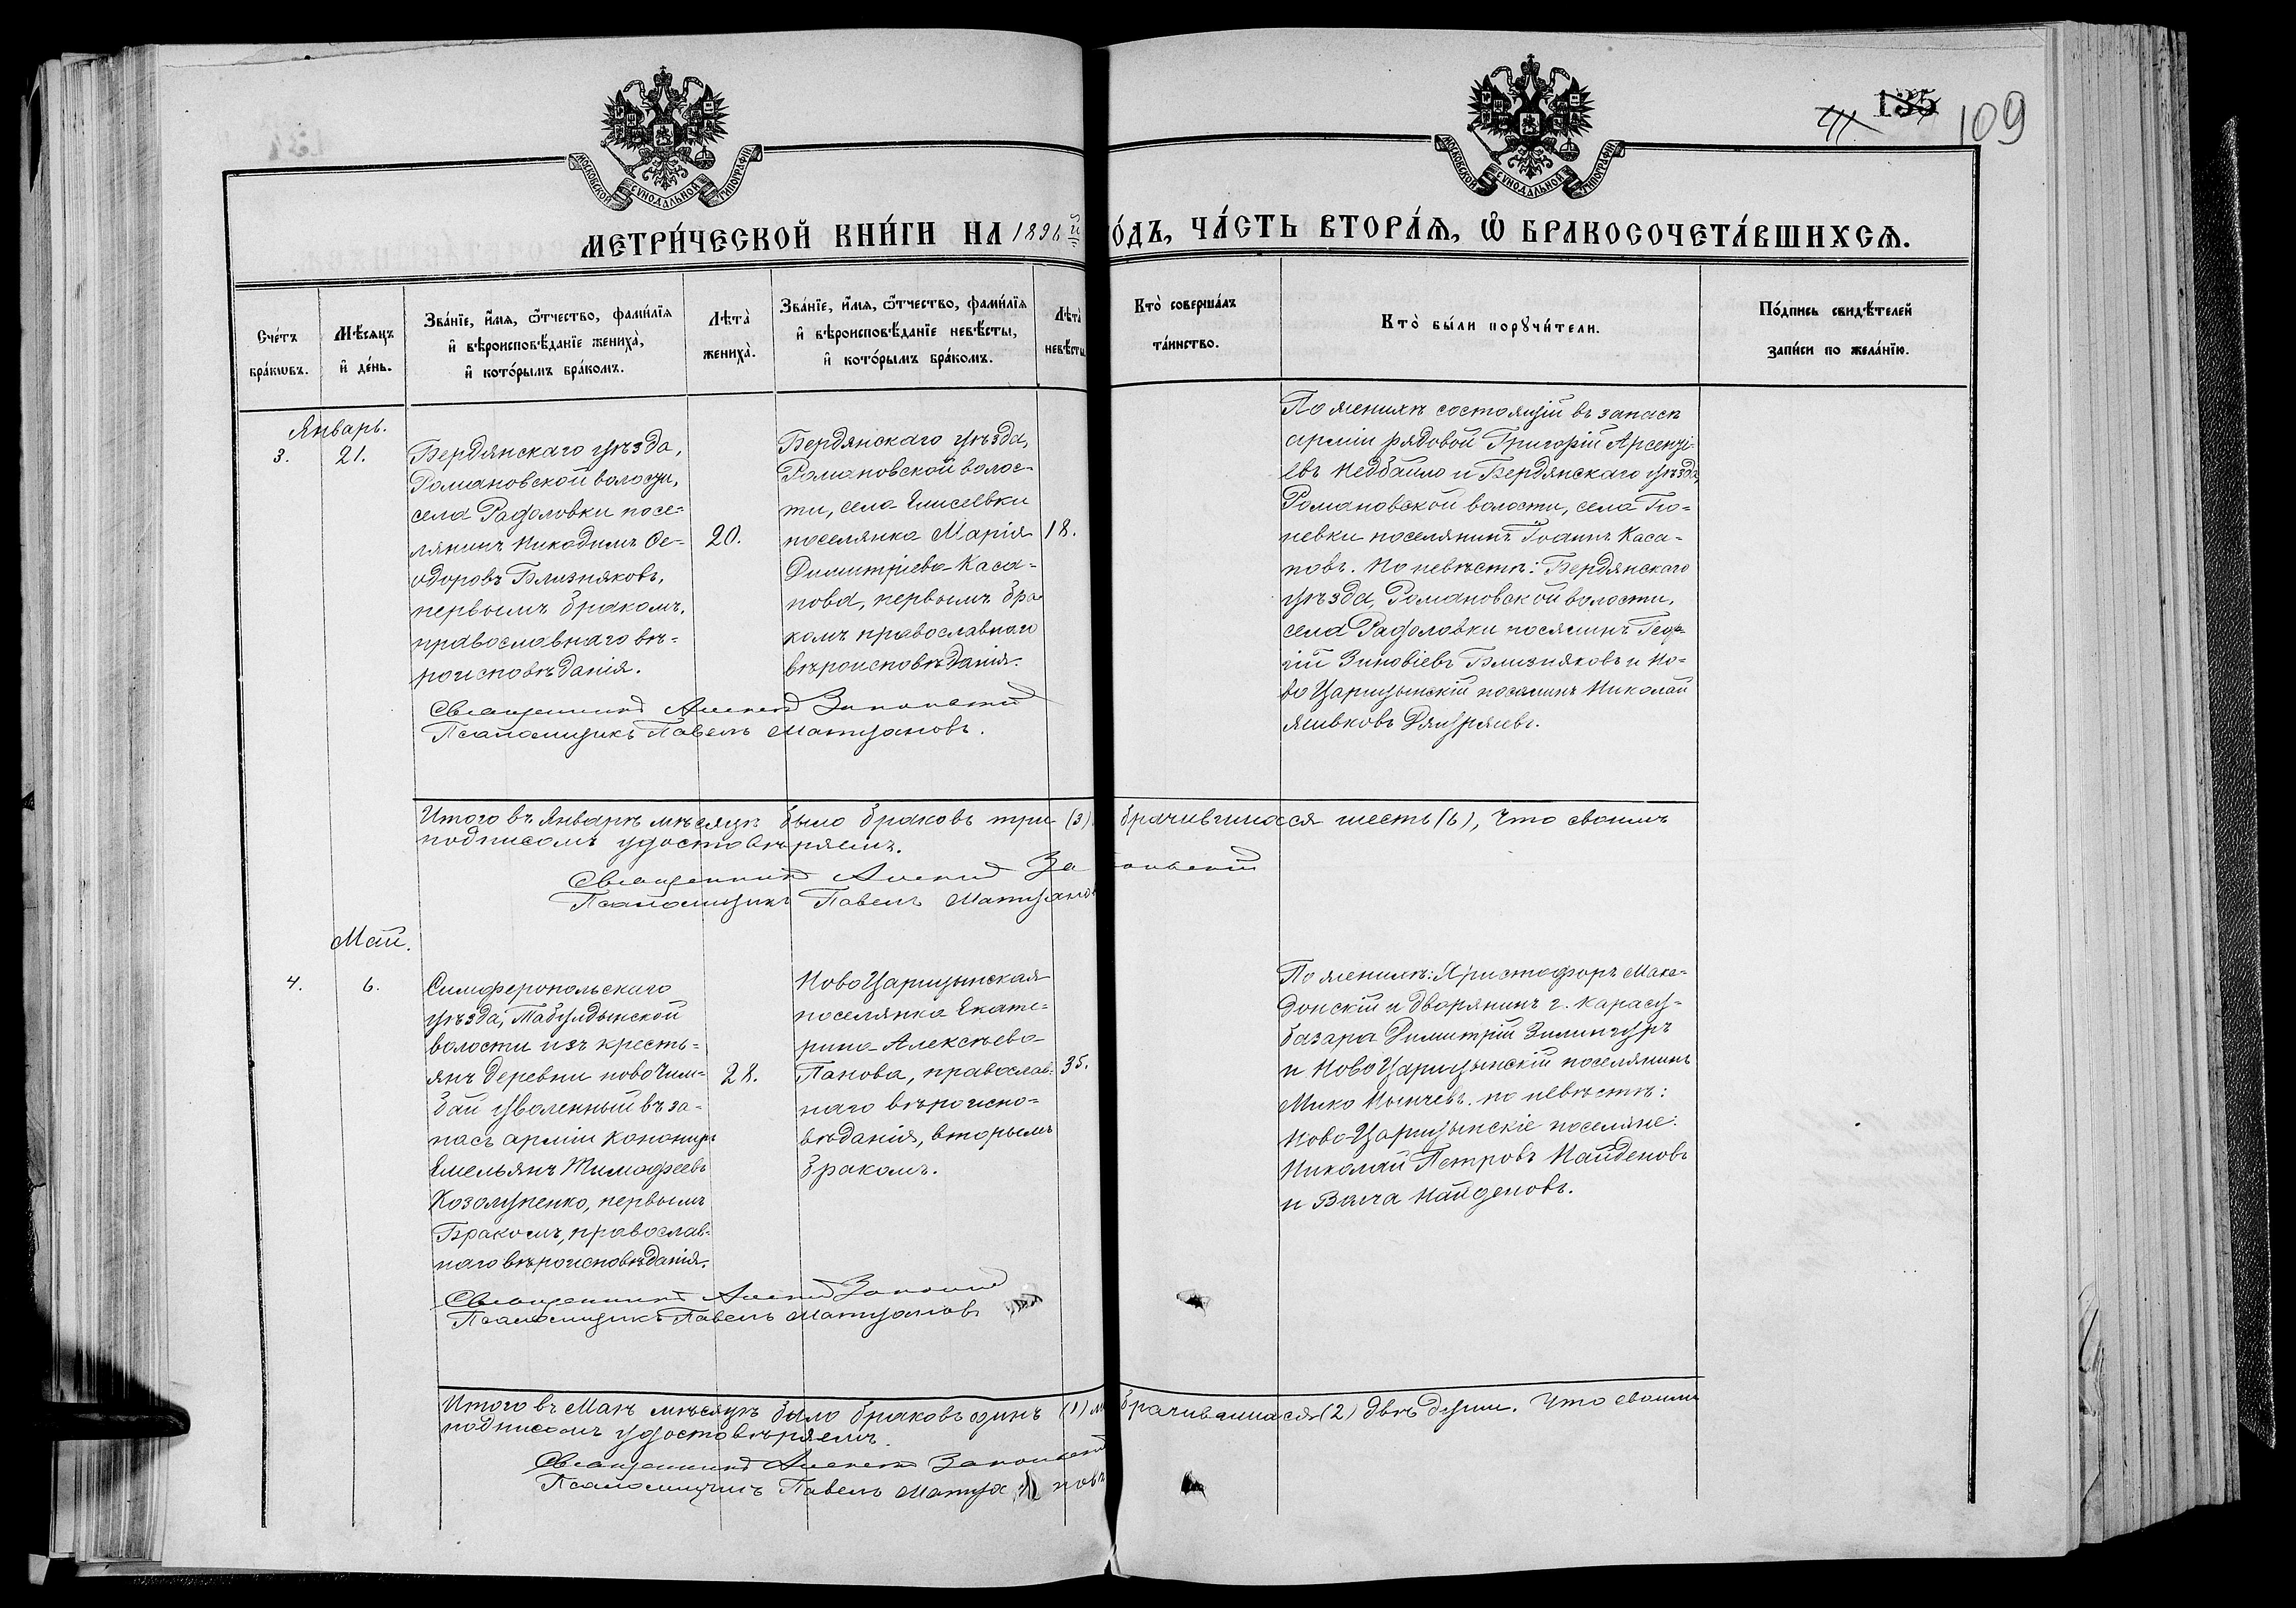 МОСКОВСКОЙ СѴНОДАЛЬНОЙ ТИПОГРАФІИ
МОСКОВСКОЙ СѴНОДАЛЬНОЙ ТИПОГРАФІИ
135 109
МЕТРИ́ЧЕСКОЙ КНИ́ГИ НА 1896 й
О́ДЪ, ЧА́СТЬ ВТОРА́Ѧ, Ѽ БРАКОСОЧЕТА́ВШИХСѦ.
Сче́тъ бра́кѡвъ.
Мѣ́сѧцъ и҆ де́нь.
Зва́нїе, и҆́мѧ, ѻ҆́тчество, фами́лїѧ
и҆ вѣроисповѣ́данїе жениха̀,
и҆ кото́рымъ бра́комъ.
Лѣта̀ жениха̀.
Зва́нїе, и҆́мѧ, ѻ҆́тчество, фами́лїѧ
и҆ вѣроисповѣ́данїе невѣ́сты,
и҆ кото́рымъ бра́комъ.
Лѣта̀ невѣ́сты
Кто̀ соверша́лъ
та́инство.
Кто̀ бы́ли порꙋчи́тели.
По́дпись свидѣ́телей
за́писи по жела́нїю.
Январь.
3. 21.
Бердянскаго уѣзда,
Романовской волости,
села Радоловки посе-
лянинъ Никодимъ Ѳе-
одоровъ Близняковъ,
первымъ бракомъ,
православнаго вѣ-
роисповѣданія.
20.
Бердянскаго уѣзда,
Романовской волос-
ти, села Елисеевки
поселянка Марія
Димитріева Каса-
нова, первымъ бра
комъ православнаго
вѣроисповѣданія.
18.
По женихѣ состоящій въ запасѣ
арміи рядовой Григорій Арсеніи-
евъ Недбайло и Бердянскаго уѣзда,
Романовской волости, села Гю-
невки поселянинъ Іоаннъ Каса-
новъ. По невѣстѣ: Бердянскаго
уѣзда, Романовской волости,
села Радоловки посялинъ Геор-
гій Зиновіевъ Близняковъ и Но-
во Царицынскій посялинъ Николай
Священникъ
Псаломщикъ Павелъ Матцановъ.
Итого въ Январѣ мѣсяцѣ было браковъ три (3).
брачившихся шесть (6), Что своимъ
подписомъ удостовѣряемъ.
Священникъ
Псаломщикъ Павелъ
Май.
4. 6.
Симферопольскаго
уѣзда, Табулдынской
волости изъ кресть-
янъ деревни ново Чим-
бай уволенный въ за-
пасъ арміи Канониръ
Емельянъ Тимофеевъ
Козолупенко, первымъ
Бракомъ, православ-
наго вѣроисповѣданія.
28.
Ново Царицынская
поселянка Екате-
рина Алексѣева
Панова, православ-
наго вѣроиспо-
вѣданія, вторымъ
бракомъ.
35.
По женихѣ: Христофоръ Маке-
донскій и дворянинъ г. Карасу-
базара Димитрій
и Ново Царицынскій поселянинъ
Мико по невѣстѣ:
Ново-Царицынскіе поселяне:
Николай Петровъ Найденовъ
и Вълча Найденовъ.
Священникъ
Псаломщикъ Павелъ Матцановъ
Итого въ Маѣ мѣсяцѣ было браковъ одинъ (1)
брачившихся (2) двѣ души. Что своимъ
подписомъ удостовѣряемъ.
Священникъ
Псаломщикъ Павелъ